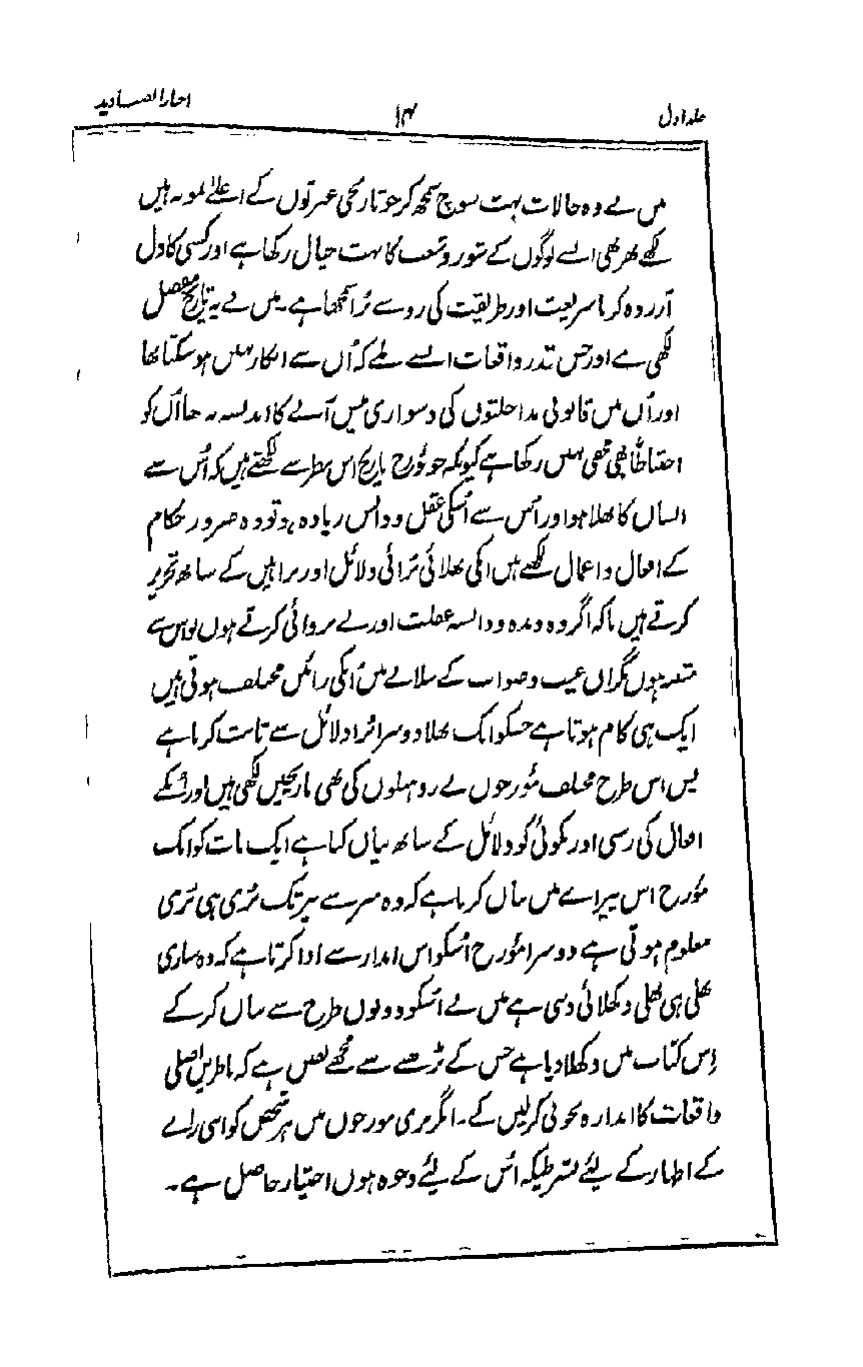 جلد اول
۱۴
اخبار الصنادید
میں نے وہ حالات بہت سوچ سمجھ کر جو تاریخی عبرتوں کے اعلےٰ نمونہ ہیں
لکھے پھر بھی ایسے لوگوں کے شور و شعب کا بہت خیال رکھا ہے اور کسی کا دل
آزردہ کرنا شریعت اور طریقت کی رو سے بُرا سمجھا ہے۔ میں نے یہ تاریخ مفصل
لکھی ہے اور جس قدر واقعات ایسے ملے کہ اُن سے انکار نہیں ہو سکتا تھا
اور اُن میں قانونی مداخلتوں کی دشواری میں آنے کا اندیشہ نہ تھا اُن کو
احتیاطاً بھی مخفی نہیں رکھا ہے کیونکہ جو مؤرخ تاریخ اس نظر سے لکھتے ہیں کہ اُس سے
انسان کا بھلا ہو اور اُس سے اُسکی عقل و دانش زیادہ ہو تو وہ ضرور حکام
کے افعال و اعمال لکھتے ہیں انکی بھلائی بُرائی دلائل اور براہین کے ساتھ تحریر
کرتے ہیں تاکہ اگر وہ دیدہ و دانستہ غفلت اور بے پروائی کرتے ہوں تو اس سے
متنبہ ہوں مگر اُن عیب و صواب کے بتلانے میں اُنکی رائیں مختلف ہوتی ہیں
ایک ہی کام ہوتا ہے جسکو ایک بھلا دوسرا بُرا دلائل سے ثابت کرتا ہے
پس اس طرح مختلف مؤرخوں نے روہیلوں کی بھی تاریخیں لکھی ہیں اور اُنکے
افعال کی زشتی اور نکوئی کو دلائل کے ساتھ بیان کیا ہے ایک بات کو ایک
مؤرخ اس پیرائے میں بیان کرتا ہے کہ وہ سر سے پیر تک بُری ہی بُری
معلوم ہوتی ہے دوسرا مؤرخ اُسکو اس انداز سے ادا کرتا ہے کہ وہ ساری
بھلی ہی بھلی دکھلائی دیتی ہے میں نے اُسکو دونوں طرح سے بیان کر کے
اِس کتاب میں دکھلا دیا ہے جس کے پڑھنے سے مجھے یقین ہے کہ ناظرین اصلی
واقعات کا اندازہ بخوبی کرلیں گے۔ اگرمیری مورخوں میں ہر شخص کو اپنی رائے
کے اظہار کے لیئے بشرطیکہ اُس کے لیئے وجوہ ہوں اختیار حاصل ہے۔